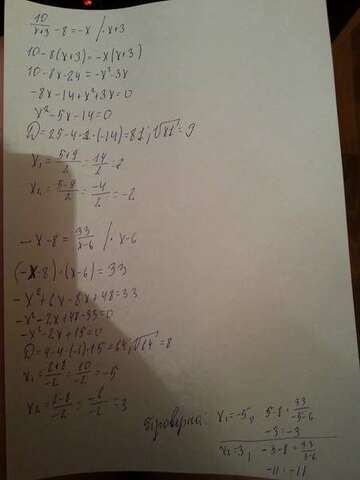 10/(x+3) - 8 = -x /· x+3
10-8(x+3) = -x(x+3)
10-8x-24 = -x²-3x
-8x-14+x²+3x=0
x²-5x-14=0
D=25-4·1·(-14)=81; √81=9
x₁ = (5+9)/2 = 14/2 = 7
x₂ = (5-9)/2 = -4/2 = -2
-x-8 = 33/(x-6) /· x-6
(-x-8)·(x-6) = 33
-x²+6x-8x+48=33
-x²-2x+48-33=0
-x²-2x+15=0
D=4-4·(-1)·15=64, √64=8
x₁ = (2+8)/-2 = 10/-2 = -5
x₂ = (2-8)/-2 = -6/-2 = 3
Проверка: x₁=-5, 5-8 = 33/(-5-6)
-3=-3
x₂=3, -3-8 = 33/(3-6)
-11=-11